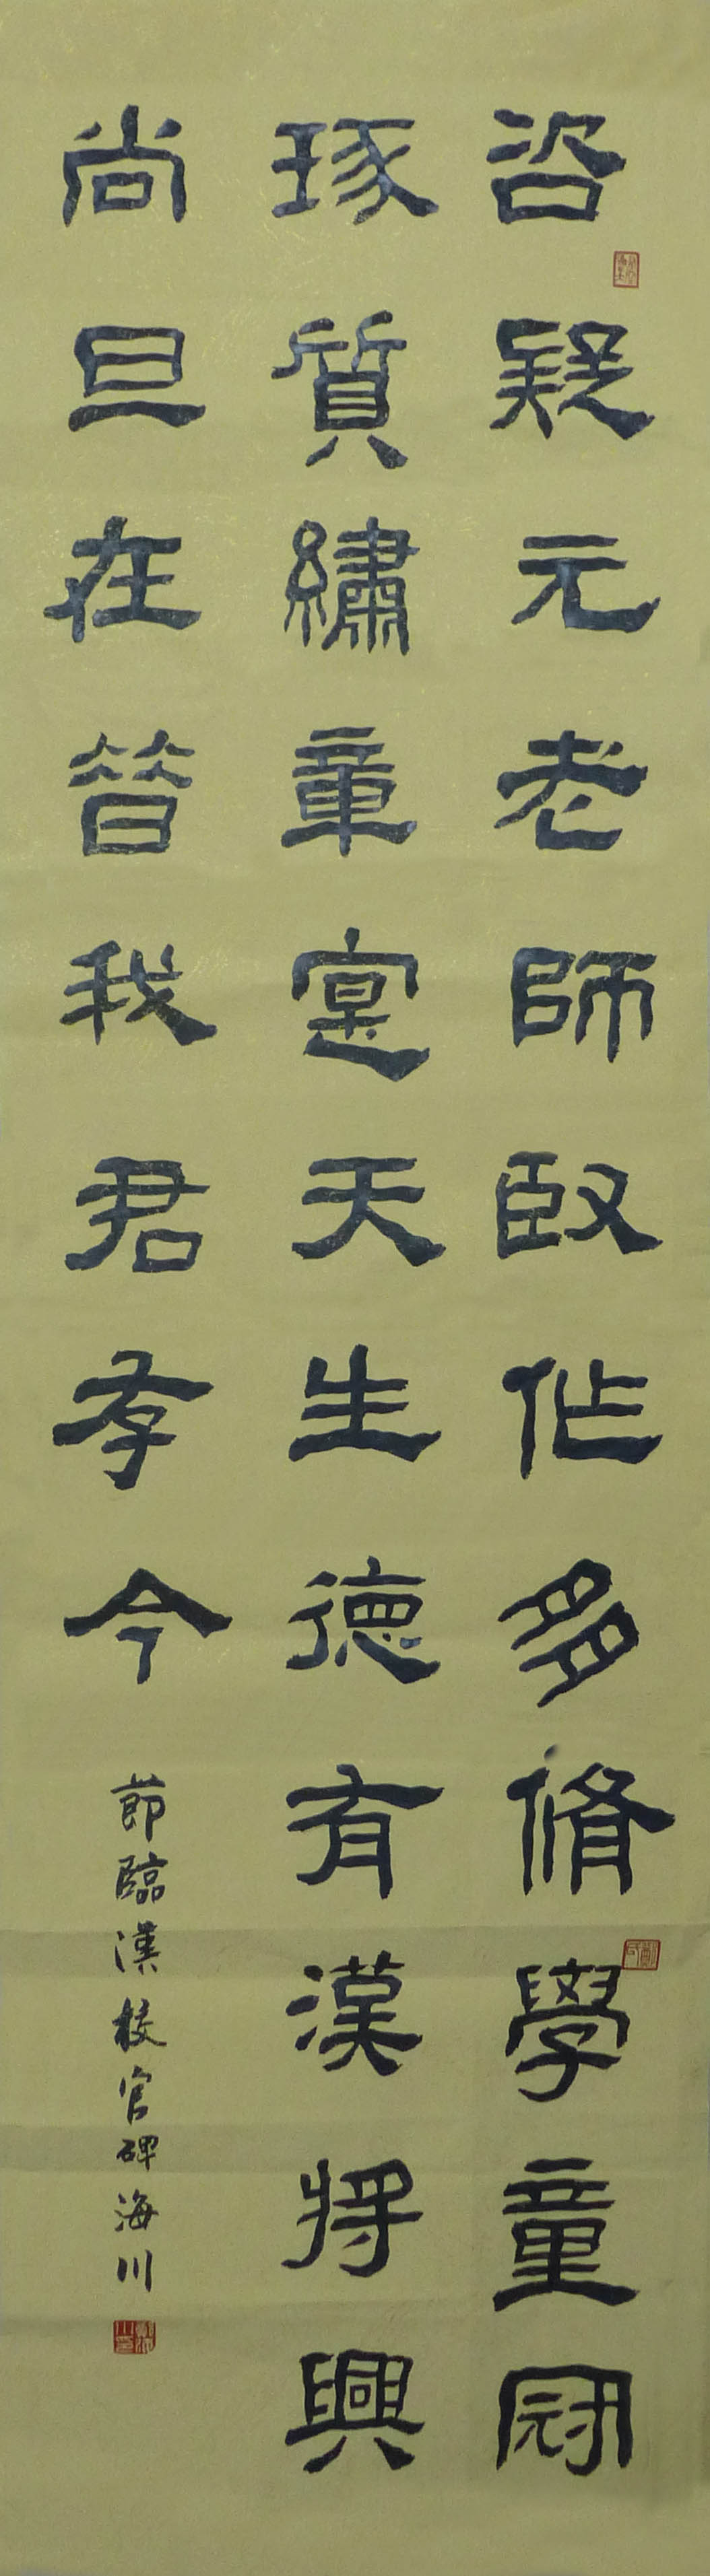 咨疑元老師臤作多脩學童冠
琢質繡章寔天生德有漢將興
尚旦在昔我君存今
節臨漢校官碑海川